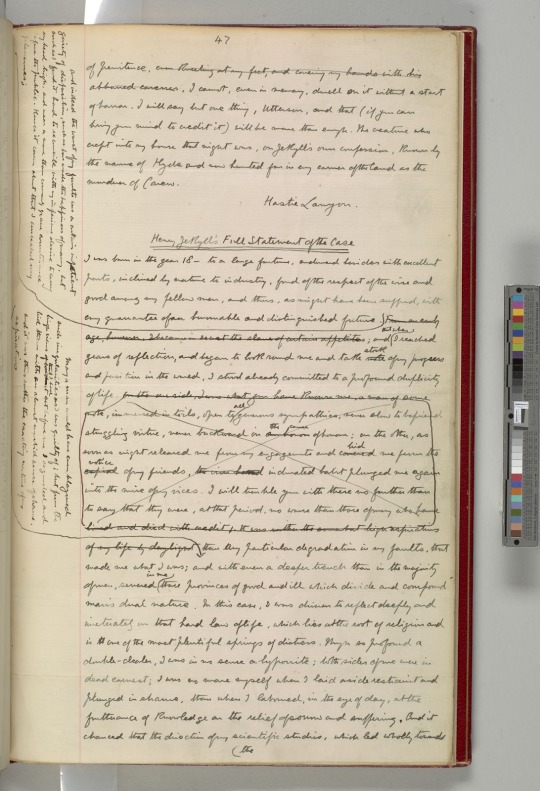 47
of penitence, even
I cannot, even in memory, dwell on it without a start
of horror. I will say but one thing, Utterson, and that (if you can
bring your mind to credit it) will be more than enough. The creature who
crept into my house that night was, on Jekyll's own confession, known by
the name of Hyde and was hunted for in every corner of the land as the
murderer of Carew.
Hastie Lanyon.
Henry Jekyll's Full Statement of the Case
I was born in the year 18— to a large fortune, endowed besides with excellent
parts, inclined by nature to industry, fond of the respect of the wise and
good among my fellow men, and thus, as might have been supposed, with
every guarantee of an honourable and distinguished future. From an early
age, however, I became in secret the slave of certain appetites; and when I reached
years of reflection, and began to look round me and take stock of my progress
and position in the world, I stood already committed to a profound duplicity
of life. On the one side, I was what you have known me, a man of some
note, immersed in toils, open to generous sympathies, never slow to befriend
struggling virtue, never backward in the cause of honour; on the other, as
soon as night released me from my engagements and hid me from the
notice of my friends, inveterate habit plunged me again
into the mire of my vices. I will trouble you with these no further than
to say that they were, at that period, no worse than those of many who have
lived and died with credit. It was rather the somewhat high aspiration
of my life by daylight than any particular degradation in my faults, that
made me what I was; and with even a deeper trench than in the majority
of men, severed in me those provinces of good and ill which divide and compound
man's dual nature. In this case, I was driven to reflect deeply and
inveterately on that hard law of life, which lies at the root of religion and
is one of the most plentiful springs of distress. Though so profound a
double-dealer, I was in no sense a hypocrite; both sides of me were in
dead earnest; I was no more myself when I laid aside restraint and
plunged in shame, than when I laboured, in the eye of day, at the
furtherance of knowledge or the relief of sorrow and suffering. And it
chanced that the direction of my scientific studies, which led wholly towards
the
And indeed the worst of my faults was a certain impatient
gaiety of disposition, such as has made the happiness of many, but
such as I found it hard to reconcile with my imperious desire to carry
my head high, and wear a more than commonly grave countenance
before the public. Hence it came about that I concealed my
pleasures;
Many a man would have even blazoned
such irregularities as I was guilty of; but from the
high views that I had set before me, I regarded and
hid them with an almost morbid sense of shame.
and it was thus rather the exacting nature of my
aspirations